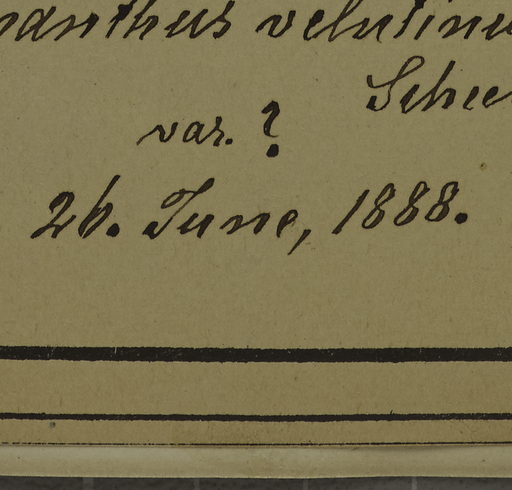 anthus velutinu
Schee
var. ?
26. June, 1888.